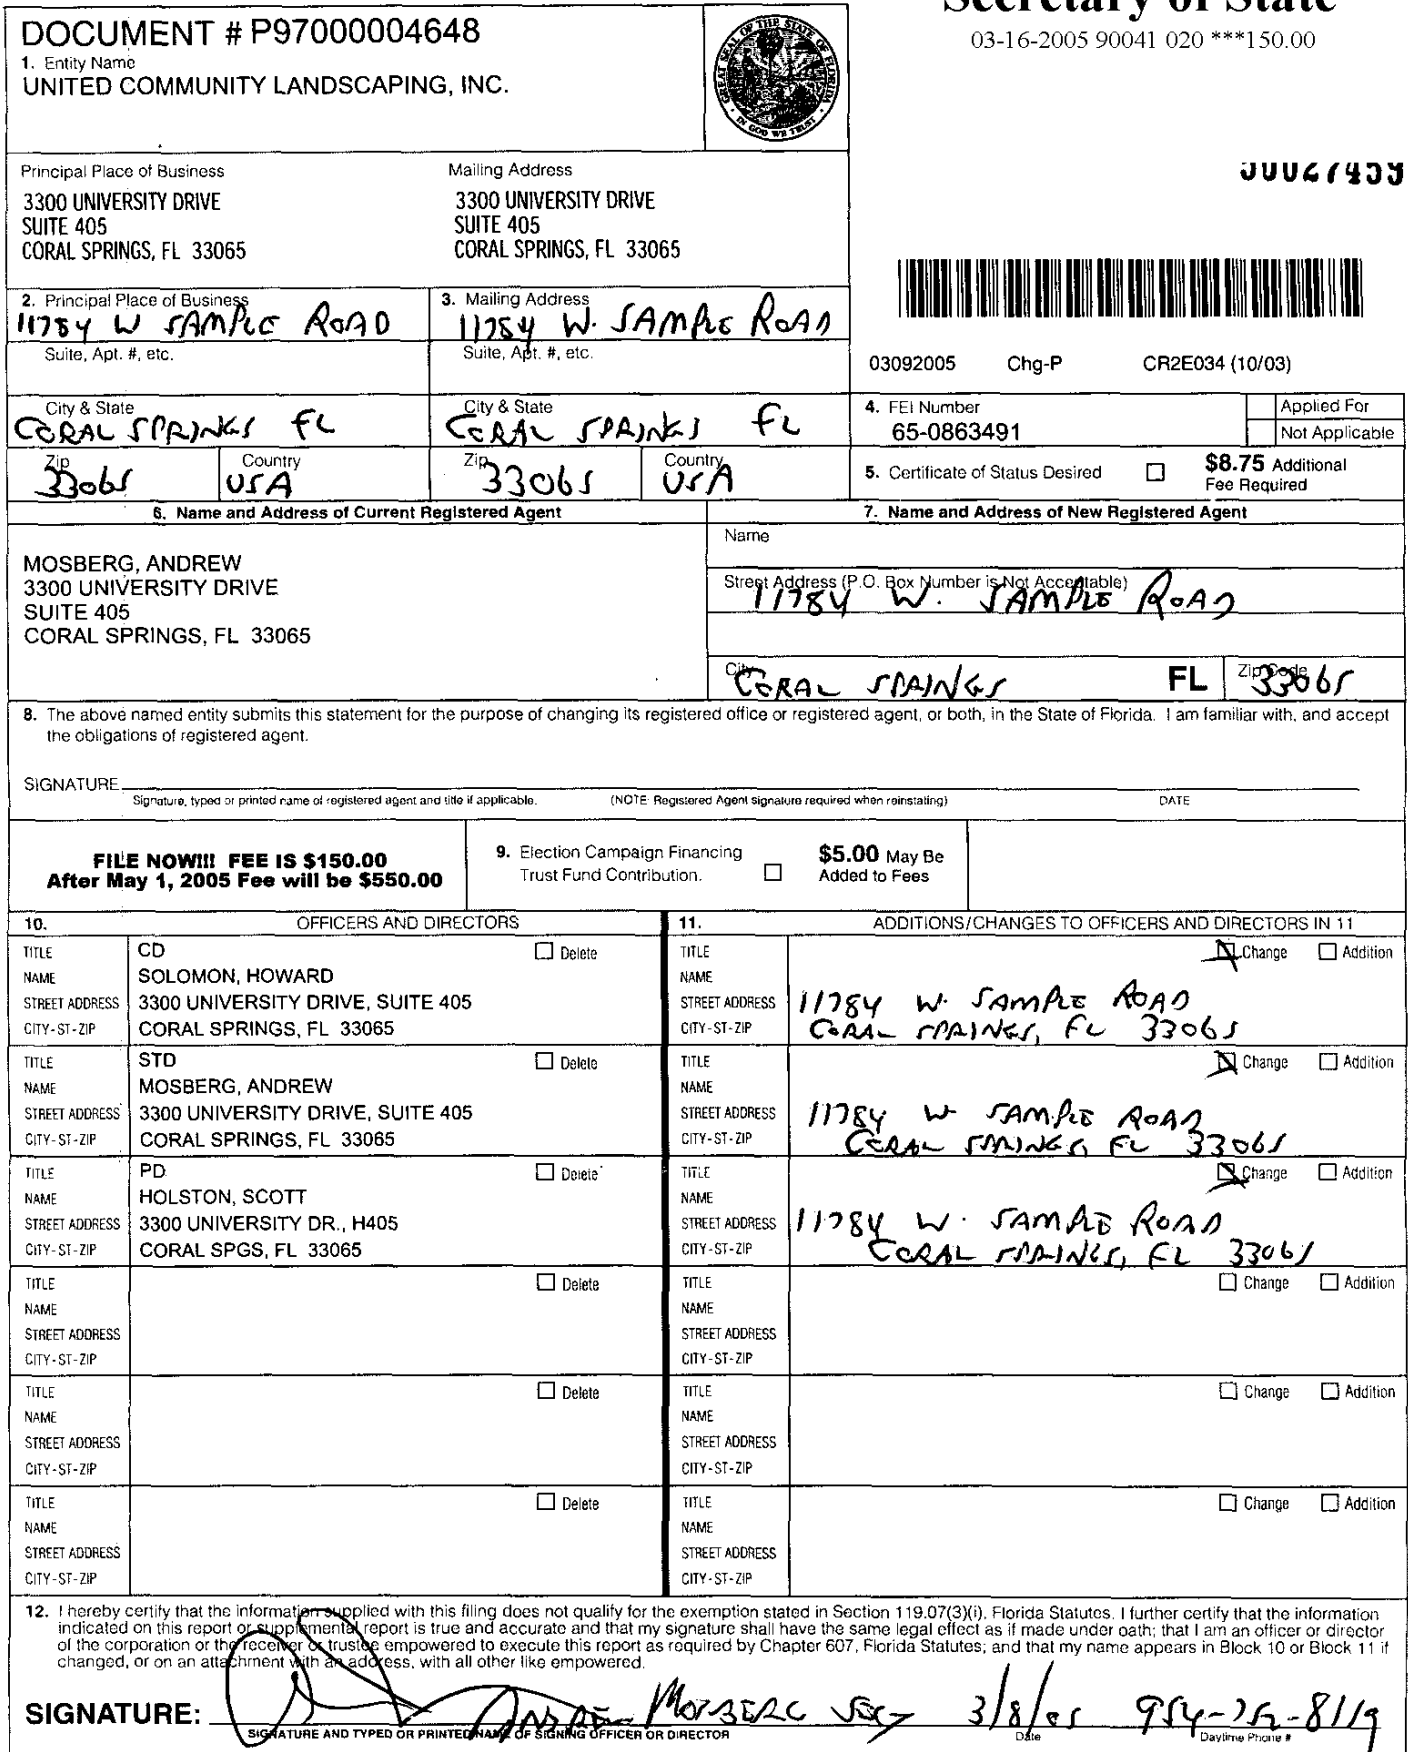 Secretary of State
03-16-2005 90041 020 ***150.00
DOCUMENT # P97000004648
1. Entity Name
UNITED COMMUNITY LANDSCAPING, INC.
GREAT SEAL OF THE STATE OF FLORIDA
IN GOD WE TRUST
Principal Place of Business
3300 UNIVERSITY DRIVE
SUITE 405
CORAL SPRINGS, FL 33065
Mailing Address
3300 UNIVERSITY DRIVE
SUITE 405
CORAL SPRINGS, FL 33065
2. Principal Place of Business
11784 W SAMPLE ROAD
Suite, Apt. #, etc.
City & State
CORAL SPRINGS FL
Zip
33065
Country
USA
3. Mailing Address
11784 W. SAMPLE ROAD
Suite, Apt. #, etc.
City & State
CORAL SPRINGS FL
Zip
33065
Country
USA
03092005 Chg-P CR2E034 (10/03)
4. FEI Number
65-0863491
Applied For
Not Applicable
5. Certificate of Status Desired
$8.75 Additional
Fee Required
6. Name and Address of Current Registered Agent
MOSBERG, ANDREW
3300 UNIVERSITY DRIVE
SUITE 405
CORAL SPRINGS, FL 33065
7. Name and Address of New Registered Agent
Name
Street Address (P.O. Box Number is Not Acceptable)
11784 W. SAMPLE ROAD
City
CORAL SPRINGS
FL
Zip Code
33065
8. The above named entity submits this statement for the purpose of changing its registered office or registered agent, or both, in the State of Florida. I am familiar with, and accept
the obligations of registered agent.
SIGNATURE
Signature, typed or printed name of registered agent and title if applicable. (NOTE: Registered Agent signature required when reinstating) DATE
FILE NOW!!! FEE IS $150.00
After May 1, 2005 Fee will be $550.00
9. Election Campaign Financing
Trust Fund Contribution.
$5.00 May Be
Added to Fees
10. OFFICERS AND DIRECTORS
TITLE CD Delete
NAME SOLOMON, HOWARD
STREET ADDRESS 3300 UNIVERSITY DRIVE, SUITE 405
CITY-ST-ZIP CORAL SPRINGS, FL 33065
TITLE STD Delete
NAME MOSBERG, ANDREW
STREET ADDRESS 3300 UNIVERSITY DRIVE, SUITE 405
CITY-ST-ZIP CORAL SPRINGS, FL 33065
TITLE PD Delete
NAME HOLSTON, SCOTT
STREET ADDRESS 3300 UNIVERSITY DR., H405
CITY-ST-ZIP CORAL SPGS, FL 33065
TITLE Delete
NAME
STREET ADDRESS
CITY-ST-ZIP
TITLE Delete
NAME
STREET ADDRESS
CITY-ST-ZIP
TITLE Delete
NAME
STREET ADDRESS
CITY-ST-ZIP
11. ADDITIONS/CHANGES TO OFFICERS AND DIRECTORS IN 11
TITLE Change Addition
NAME
STREET ADDRESS 11784 W. SAMPLE ROAD
CITY-ST-ZIP CORAL SPRINGS, FL 33065
TITLE Change Addition
NAME
STREET ADDRESS 11784 W SAMPLE ROAD
CITY-ST-ZIP CORAL SPRINGS, FL 33065
TITLE Change Addition
NAME
STREET ADDRESS 11784 W. SAMPLE ROAD
CITY-ST-ZIP CORAL SPRINGS, FL 33065
TITLE Change Addition
NAME
STREET ADDRESS
CITY-ST-ZIP
TITLE Change Addition
NAME
STREET ADDRESS
CITY-ST-ZIP
TITLE Change Addition
NAME
STREET ADDRESS
CITY-ST-ZIP
12. I hereby certify that the information supplied with this filing does not qualify for the exemption stated in Section 119.07(3)(i), Florida Statutes. I further certify that the information
indicated on this report or supplemental report is true and accurate and that my signature shall have the same legal effect as if made under oath; that I am an officer or director
of the corporation or the receiver or trustee empowered to execute this report as required by Chapter 607, Florida Statutes; and that my name appears in Block 10 or Block 11 if
changed, or on an attachment with an address, with all other like empowered.
SIGNATURE: ANDREW MOSBERG SEC 3/8/05 954-752-8119
SIGNATURE AND TYPED OR PRINTED NAME OF SIGNING OFFICER OR DIRECTOR Date Daytime Phone #